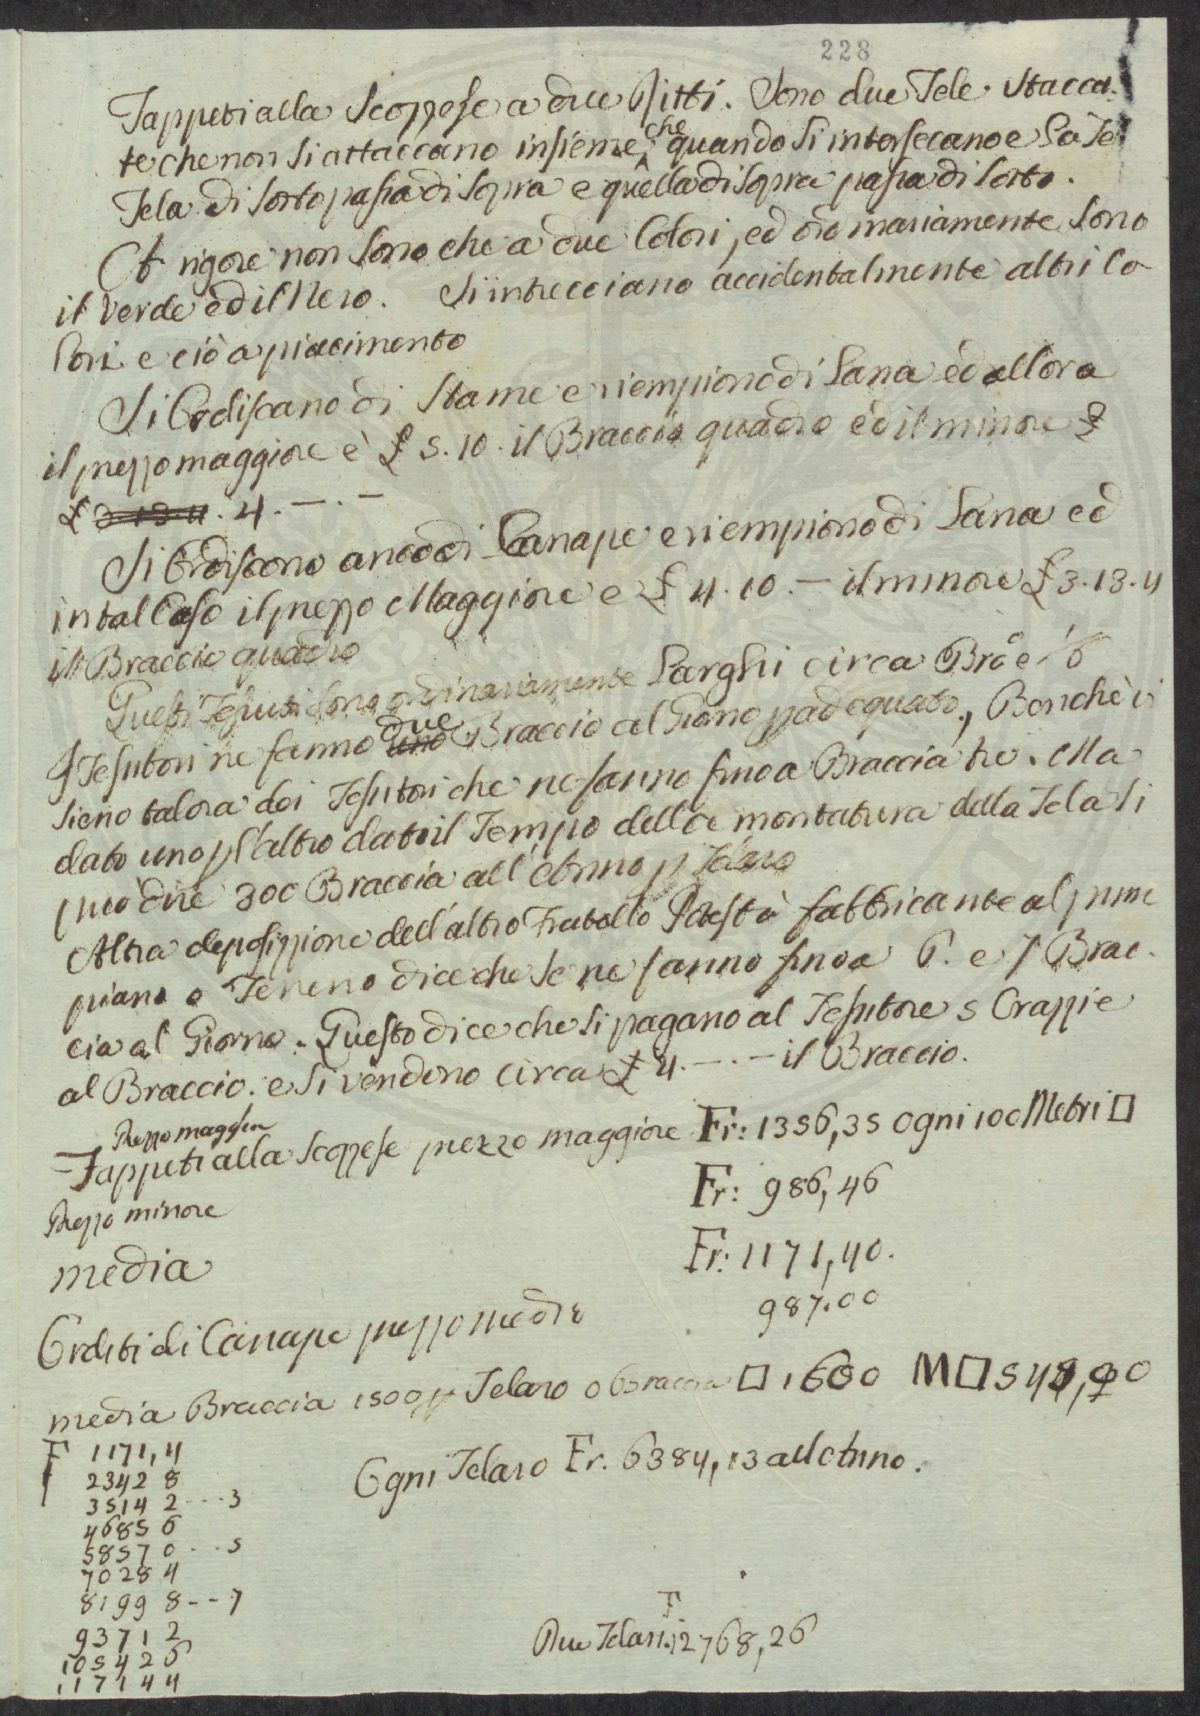 228
Tappeti alla Scozzese a due Ritti. Sono due Tele Stacca-
te che non si attaccano insieme che quando si intersecano e la Te
Tela di sotto passa di sopra e quella di sopra passa di sotto.
A rigore non sono che a due Colori, ed ordinariamente sono
il verde ed il Nero. Si intrecciano accidentalmente altri Co-
lori e ciò a piacimento
Si Ordiscano di Stame e riempiono di Lana ed allora
il prezzo maggiore è £ 5.10. il Braccio quadro ed il minore £
£ 3.13.4. 4.—.—
Si Ordiscono anco di Canape e riempiono di Lana ed
in tal Caso il prezzo Maggiore e £ 4.10.— il minore £ 3.13.4
il Braccio quadro
Questi Tessuti sono ordinariamente Larghi circa Brã e
I Tessitori ne fanno uno due Braccio al Giorno p adequato, Benchè vi
sieno talora dei Tessitori che ne fanno fino a Braccia tre. Ma
dato uno p l'altro dato il Tempo della montatura della Tela si
può dire 300 Braccia all'Anno p Telaro
Altra deposizione dell'altro Fratello Potestà fabbricante al prim
piano o Terreno dice che se ne fanno fino a 6. e 7 Brac-
cia al Giorno. Questo dice che si pagano al Tessitore 5 Crazzie
al Braccio. e si vendono circa £ 4.—.— il Braccio.
Prezzo maggior
Tappeti alla Scozzese prezzo maggiore Fr: 1356,35 Ogni 100 Metri □
Prezzo minore Fr: 986,46
media Fr: 1171,40.
Orditi di Canape prezzo medio 987.00
media Braccia 1500 p Telaro o Braccia □ 1600 M□
F 1171,4
2342 8
3514 2 - - - 3
4685 6
5857 0 - - 5
7028 4
8199 8 - - 7
9371 2
10542 6
11714 4
Ogni Telaro Fr. 6384,13 all Anno.
Due Telari F. 12768,26